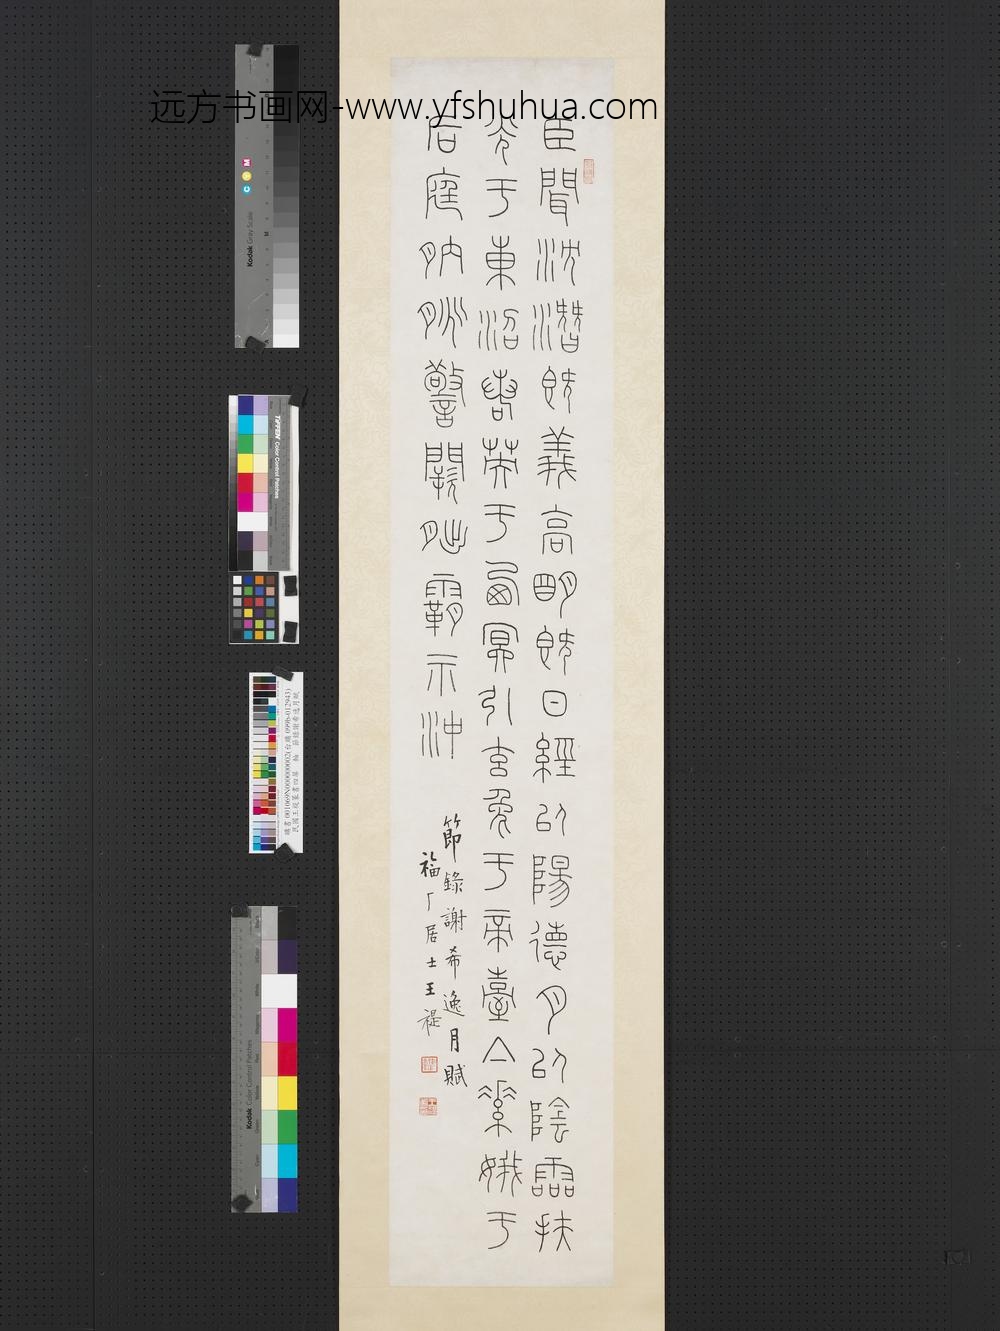 远方书画网-www.yfshuhua.com
臣聞沈潛既義高明既日經以陽德月以陰靈扶
光于東沼英于西冥引玄兔于帝臺亼素娥于
后庭朒朓警闕朏霸示沖
節錄謝希逸月賦
福厂居士王禔
Kodak Gray Scale
C Y M
TIFFEN Color Control Patches
Kodak Color Control Patches